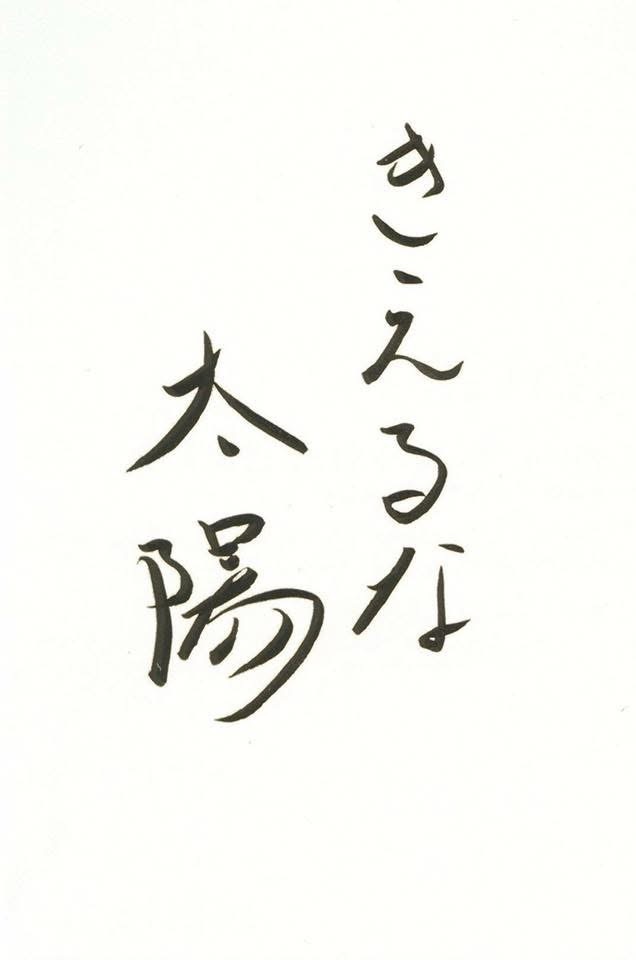 きえるな
太陽